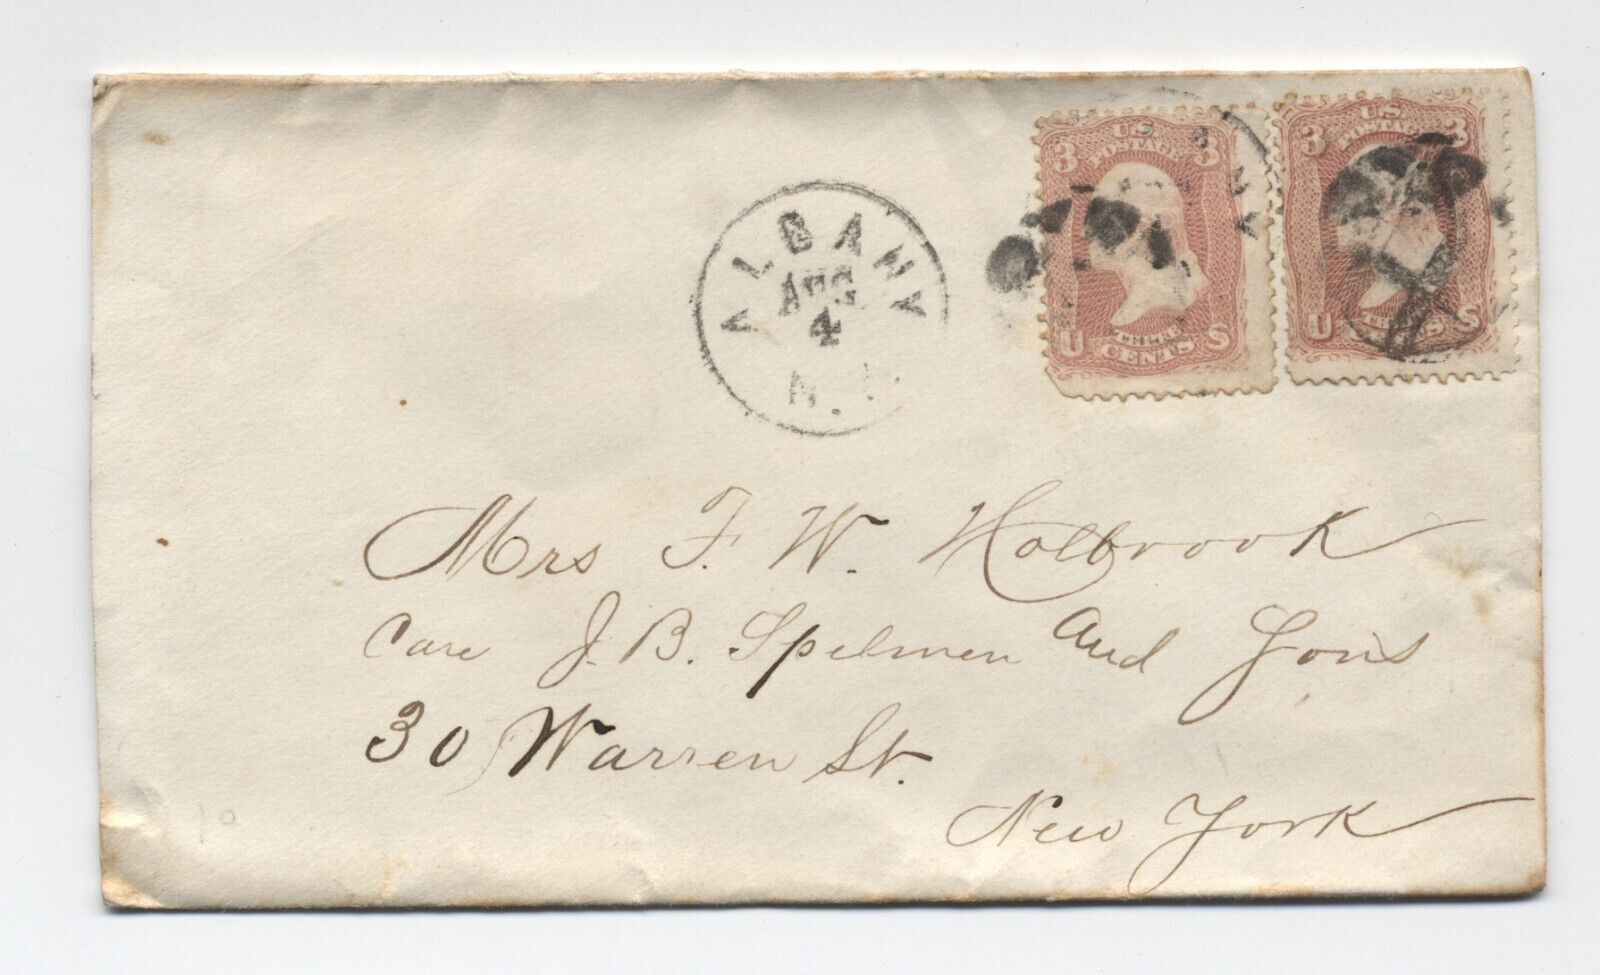 ALBANY
AUG
4
N.
3 U.S. 3
POSTAGE
THREE
U CENTS S
3 U.S. 3
POSTAGE
U CENTS S
Mrs F. W. Holbrook
Care J. B. Spelmen and Sons
30 Warren St.
New York
10